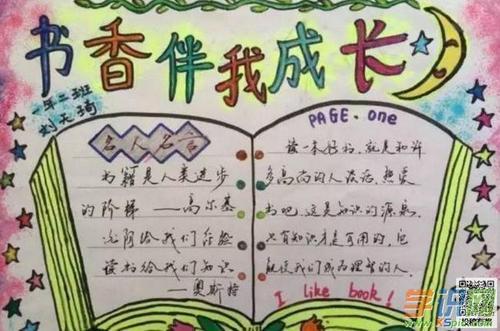 书香伴我成长
一年二班
刘天琦
名人名言
书籍是人类进步
的阶梯——高尔基
光阴给我们经验
读书给我们知识
——奥斯特
PAGE.one
读一本好书,就是和许
多高尚的人谈话,热爱
书吧,这是知识的源泉,
只有知识才是可用的,它
能使我们成为理智的人,
I like book!
学说网